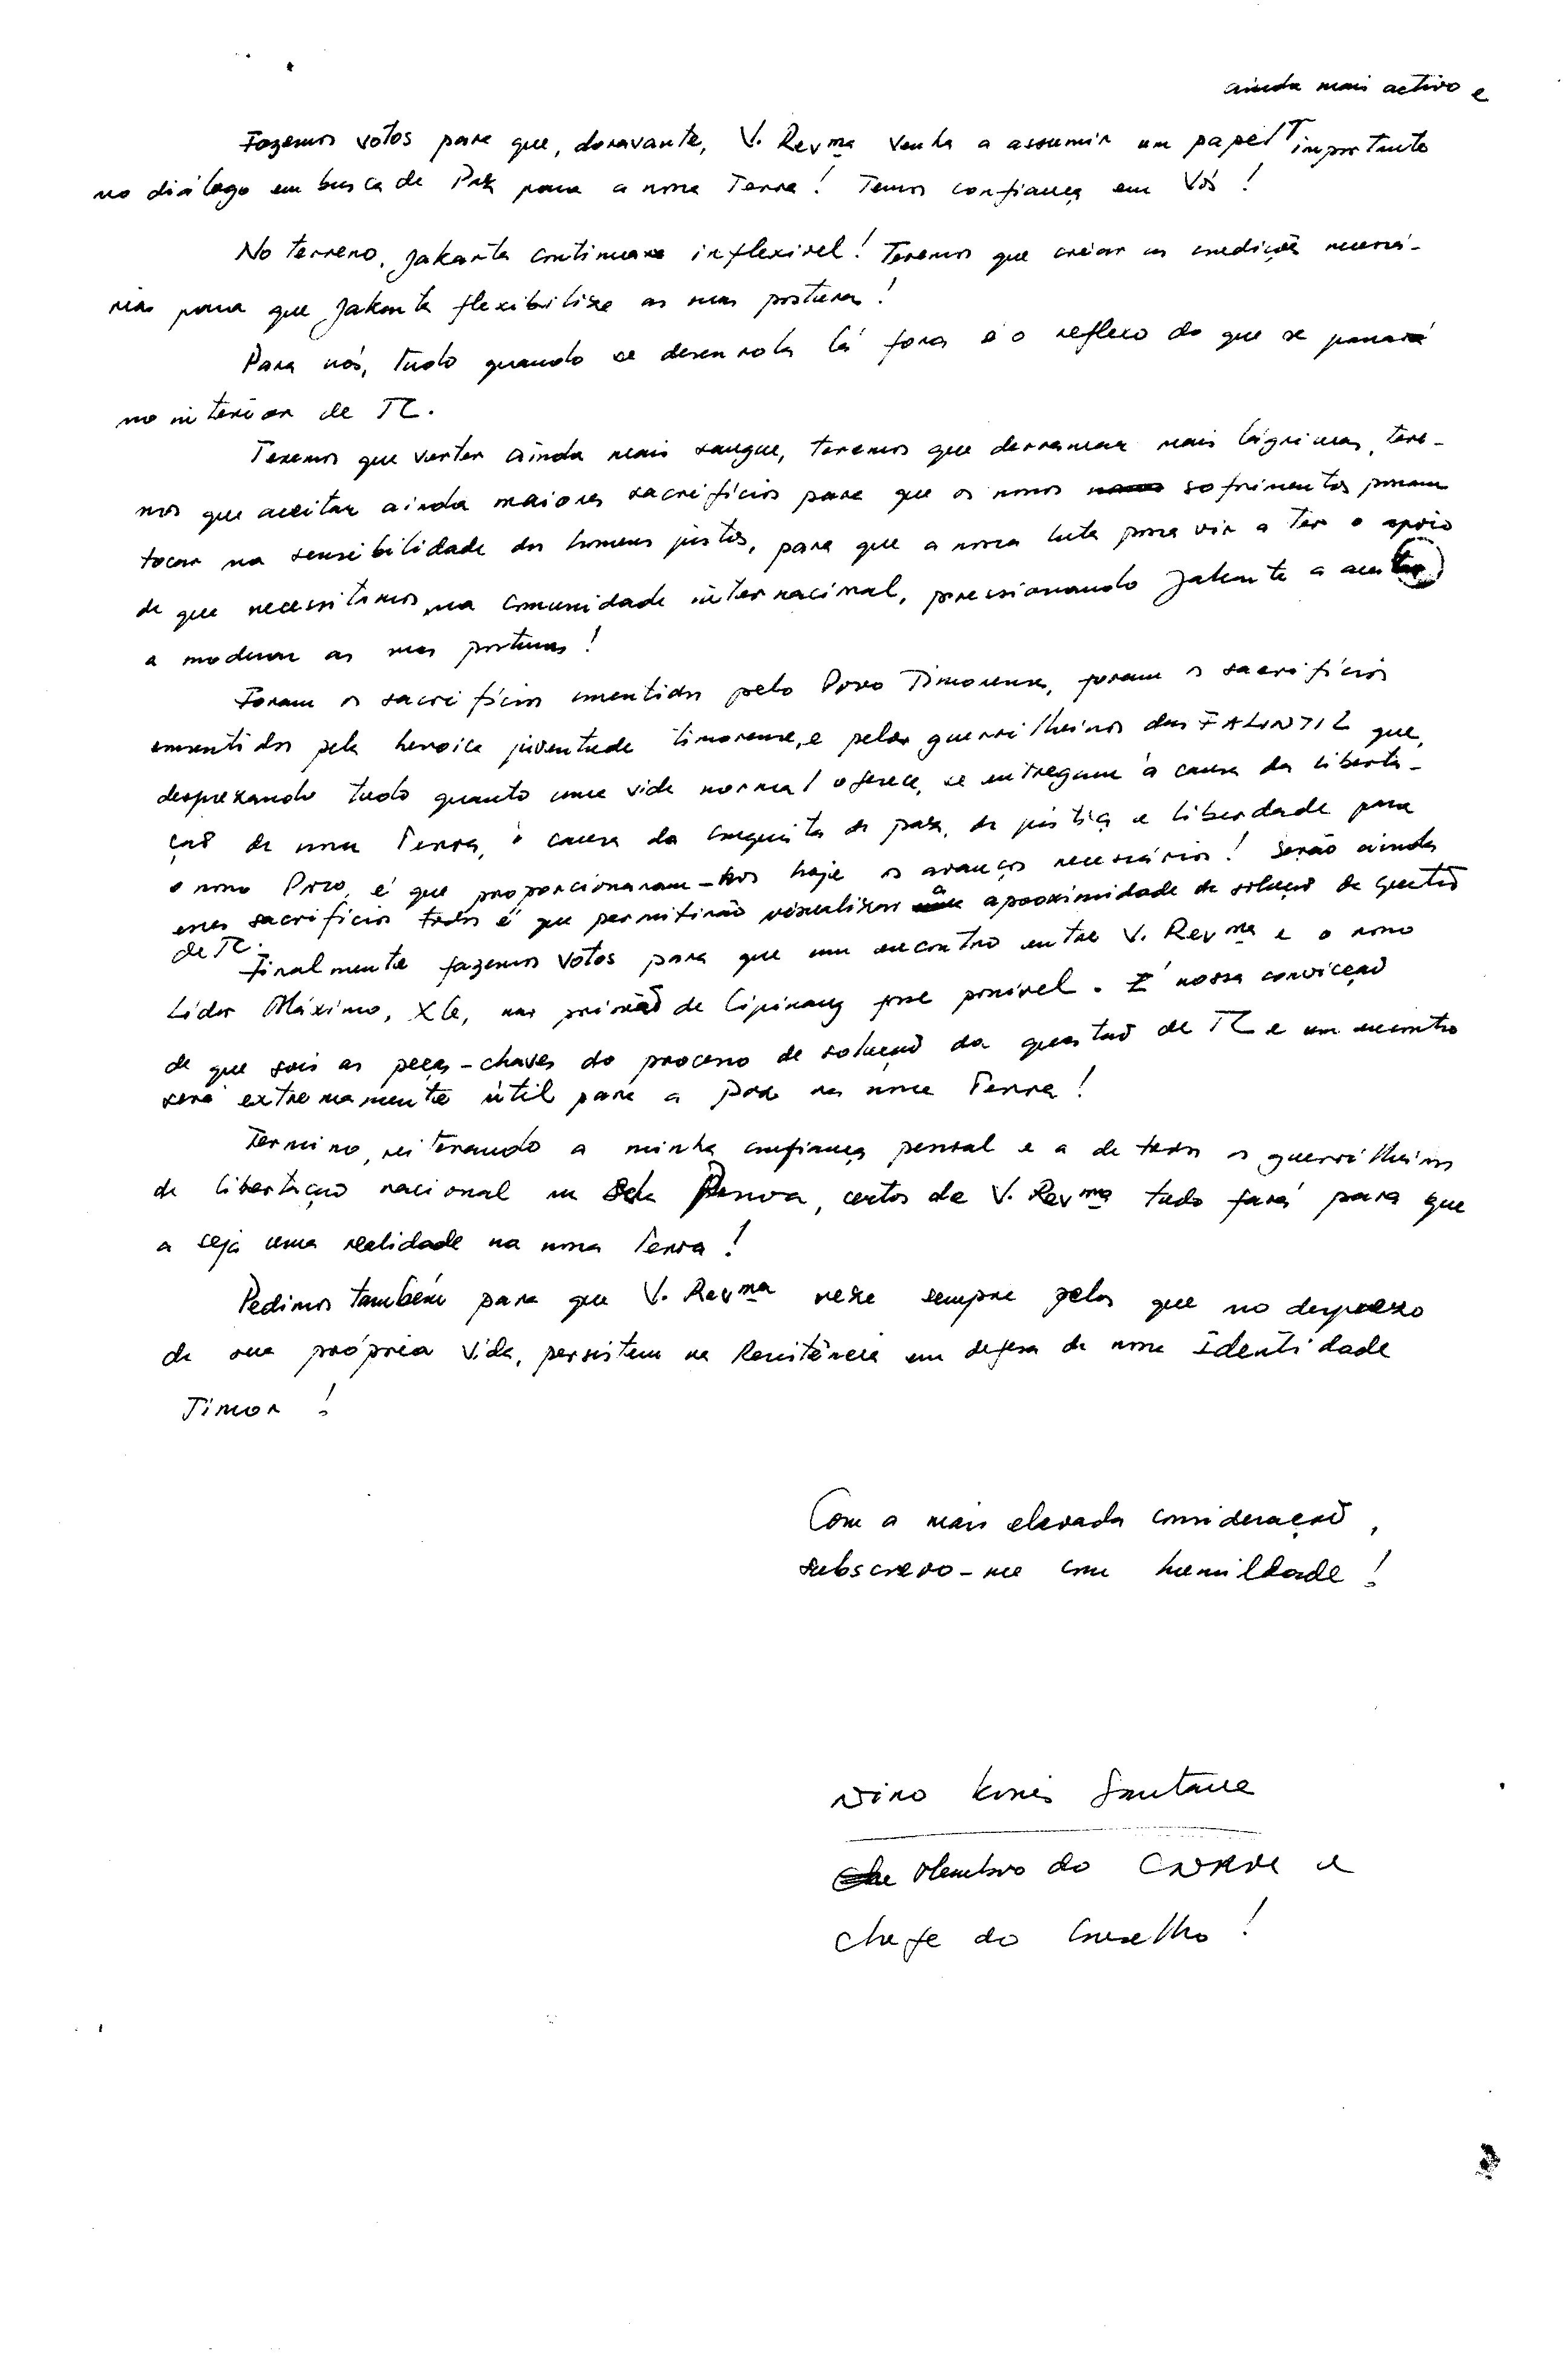 ainda mais activo e
Fazemos votos para que, doravante, V. Revma venha a assumir um papel importante
no diálogo em busca de Paz para a nossa Terra! Temos confiança em Vós!
No terreno, Jakarta continua inflexível! Teremos que criar as condições necessá-
rias para que Jakarta flexibilize as suas posturas!
Para nós, tudo quando se desenrola lá fora é o reflexo do que se passará
no interior de TL.
Teremos que verter ainda mais sangue, teremos que derramar mais lágrimas, tere-
mos que aceitar ainda maiores sacrifícios para que os nossos sofrimentos possam
tocar na sensibilidade dos homens justos, para que a nossa luta possa vir a ter o apoio
de que necessitamos na comunidade internacional, pressionando Jakarta a aceitar
a moderar as suas posturas!
Foram os sacrifícios consentidos pelo Povo Timorense, foram os sacrifícios
consentidos pela heroica juventude timorense, e pelos guerrilheiros das FALINTIL que,
desprezando tudo quanto uma vida normal oferece, se entregam à causa da liberta-
ção da nossa Terra, à causa da conquista da paz, da justiça e liberdade para
o nosso Povo, é que proporcionaram-nos hoje os avanços necessários! Serão ainda
esses sacrifícios todos é que permitirão visualizar a proximidade da solução da questão
de TL.
Finalmente fazemos votos para que um encontro entre V. Revma e o nosso
Líder Máximo, XG, na prisão de Cipinang fosse possível. É nossa convicção
de que sois as peças-chaves do processo de solução da questão de TL e um encontro
será extremamente útil para a paz na nossa Terra!
Termino, reiterando a minha confiança pessoal e a de todos os guerrilheiros
de libertação nacional na Sda Pessoa, certos de V. Revma tudo fará para que
a seja uma realidade na nossa Terra!
Pedimos também para que V. Revma reze sempre pelos que no desprezo
da sua própria vida, persistem na Resistência em defesa da nossa Identidade
Timor!
Com a mais elevada consideração,
subscrevo-me com humildade!
Nino Konis Santana
Membro do CNRM e
Chefe do Conselho!